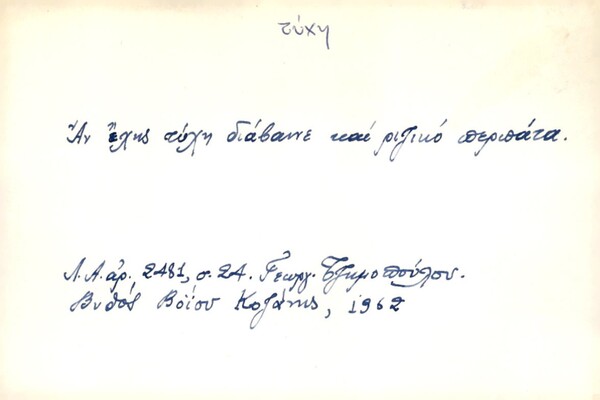 τύχη
Ἂν ἔχης τύχη διάβαινε καί ριζικό περπάτα.
Λ.Α. ἀρ. 2481, σ. 24. Γεωργ. Τζημοπούλου.
Βυθός Βοΐου Κοζάνης, 1962